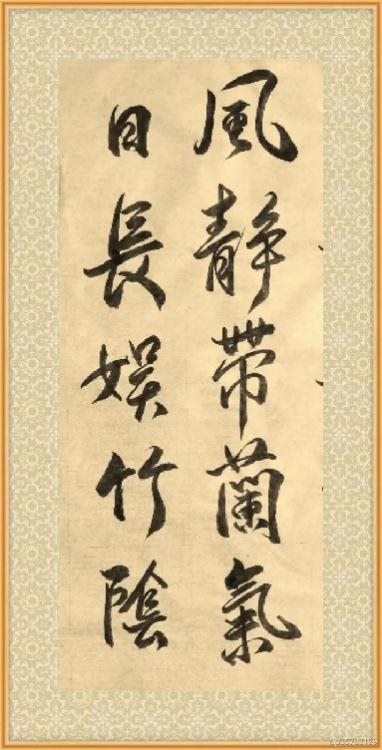 風靜帶蘭氣
日長娛竹陰